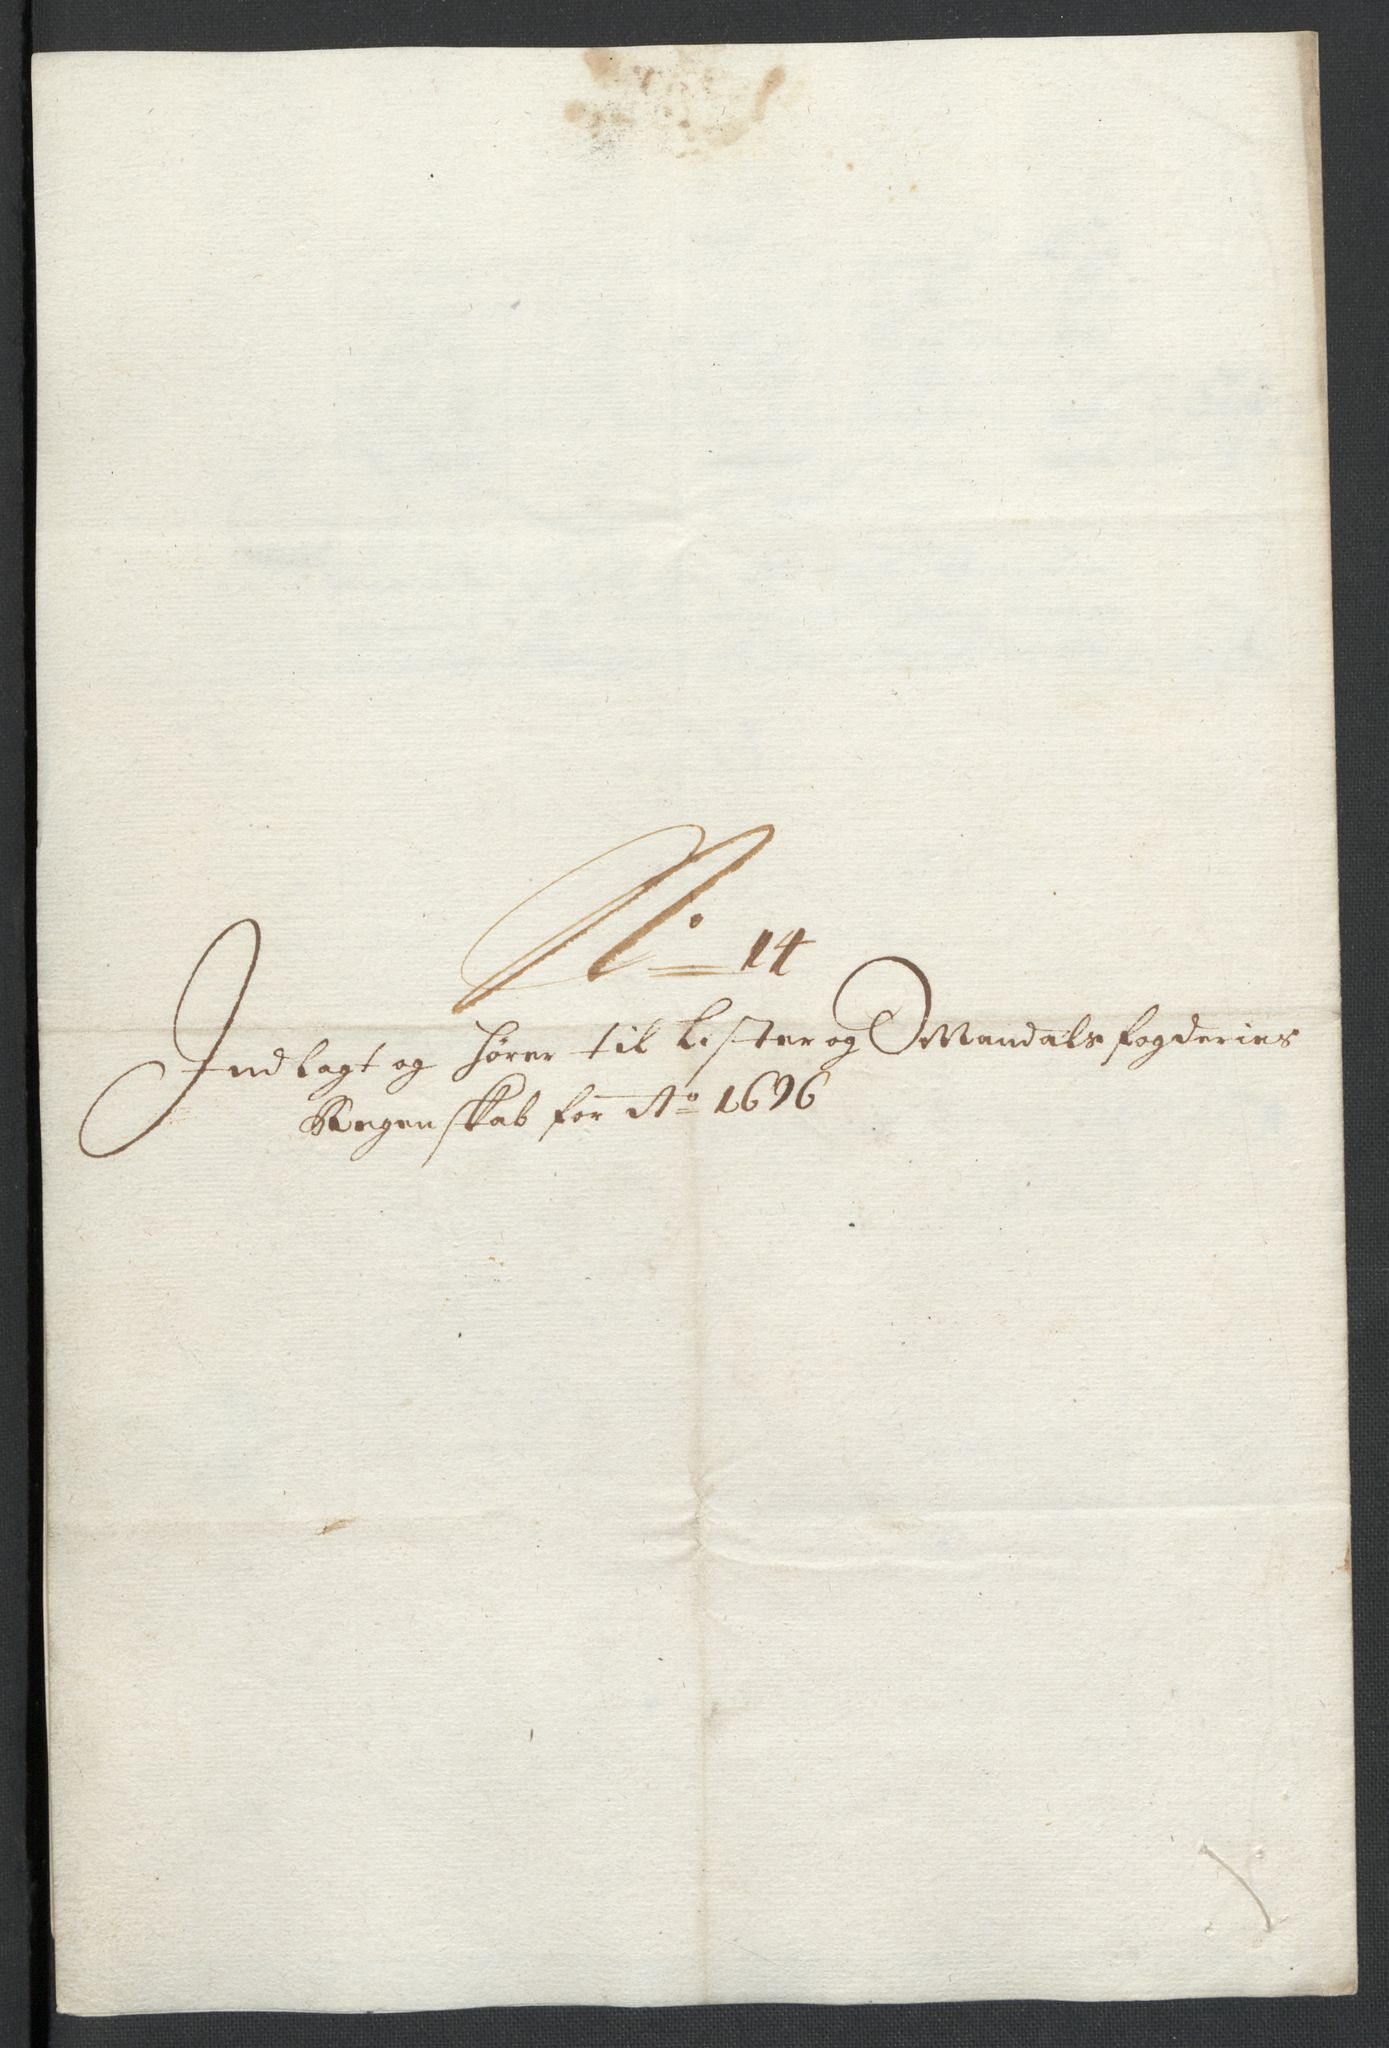 No 14
Indlagt og hører til Lister og Mandals fogderies
Regenskab for Ao 1696